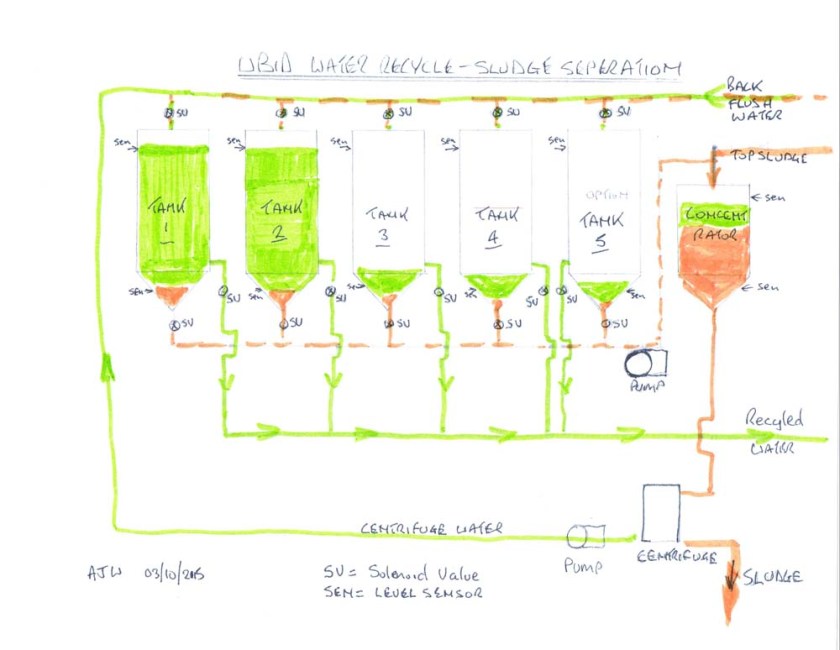 WATER RECYCLE-SLUDGE SEPERATION
BACK
FLUSH
WATER
SU
SU
SU
SU
SU
sen
sen
sen
sen
sen
TOP SLUDGE
sen
TANK
1
TANK
2
TANK
3
TANK
4
OPTION
TANK
5
CONCENT
RATOR
sen
sen
sen
sen
sen
sen
SU
SU
SU
SU
SU
SU
SU
SU
SU
SU
PUMP
Recycled
WATER
CENTRIFUGE WATER
PUMP
CENTRIFUGE
SLUDGE
AJW
SV = Solenoid Valve
SEN = LEVEL SENSOR